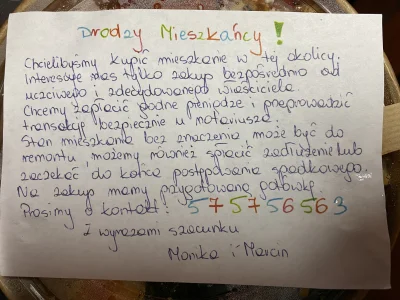 Drodzy Mieszkańcy!
Chcielibyśmy kupić mieszkanie w tej okolicy.
Interesuje nas tylko zakup bezpośrednio od
uczciwego i zdecydowanego właściciela.
Chcemy zapłacić godne pieniądze i przeprowadzić
transakcję bezpiecznie u notariusza.
Stan mieszkania bez znaczenia może być do
remontu, możemy również spłacić zadłużenie lub
zaczekać do końca postępowania spadkowego.
Na zakup mamy przygotowaną gotówkę.
Prosimy o kontakt: 575756563
Z wyrazami szacunku
Monika i Marcin